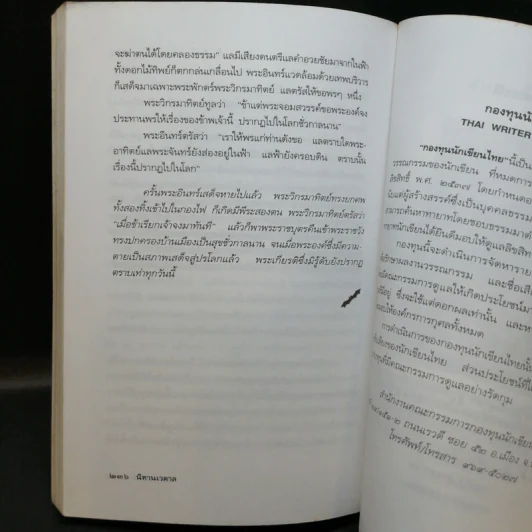 จะฆ่าตนได้โดยคลองธรรม" แลมีเสียงดนตรีแลคำอวยชัยมาจากในฟ้า
ทั้งดอกไม้ทิพย์ก็ตกกล่นเกลื่อนไป พระอินทร์แวดล้อมด้วยเทพบริวาร
ก็เสด็จมาเฉพาะพระพักตร์พระวิกรมาทิตย์ แลตรัสให้ขอพร ๆ หนึ่ง
พระวิกรมาทิตย์ทูลว่า "ข้าแต่พระจอมสวรรค์ขอพระองค์จง
ประทานพรให้เรื่องของข้าพเจ้านี้ ปรากฏไปในโลกชั่วกาลนาน"
พระอินทร์ตรัสว่า "เราให้พรแก่ท่านดังขอ แลตราบใดพระ
อาทิตย์แลพระจันทร์ยังส่องอยู่ในฟ้า แลฟ้ายังครอบดิน ตราบนั้น
เรื่องนี้ปรากฏไปในโลก"
ครั้นพระอินทร์เสด็จหายไปแล้ว พระวิกรมาทิตย์ทรงยกศพ
ทั้งสองทิ้งเข้าไปในกองไฟ ก็เกิดมีพีระสองตน พระวิกรมาทิตย์ตรัสว่า
"เมื่อข้าเรียกเจ้าจงมาทันที" แล้วก็พาพระราชบุตรคืนเข้าพระราชวัง
ทรงปกครองบ้านเมืองเป็นสุขชั่วกาลนาน จนเมื่อพระองค์ซึ่งมีความ
ตายเป็นสภาพเสด็จสู่ปรโลกแล้ว พระเกียรติซึ่งมีรู้ดับยังปรากฏ
ตราบเท่าทุกวันนี้
๒๓๖ นิทานเวตาล
กองทุนนัก
THAI WRITER
"กองทุนนักเขียนไทย" นี้เป็น
วรรณกรรมของนักเขียน ที่หมดการ
ลิขสิทธิ์ พ.ศ. ๒๕๓๗ โดยกำหนด
นับแต่ผู้สร้างสรรค์ซึ่งเป็นบุคคลธรรม
สามารถค้นหาทายาทโดยชอบธรรมมา
ทายาทนักเขียนได้ยินดีมอบให้ดูแลลิขสิท
กองทุนนี้จะดำเนินการจัดหาราย
รักษาผลงานวรรณกรรม และชื่อเสีย
คณะกรรมการดูแลให้เกิดประโยชน์
ซึ่งจะใช้แต่ดอกผลเท่านั้น และห
ให้องค์กรการกุศลทั้งหมด
การดำเนินการของกองทุนนักเขียนไทย
ของนักเขียนไทย ส่วนประโยชน์ที่
มีคณะกรรมการดูแลอย่างรัดกุม
สำนักงานคณะกรรมการกองทุนนักเขียน
ถนนเรวดี ซอย ๕๒ อ.เมือง จ.
โทรศัพท์/โทรสาร ๙๖๙-๕๐๒๗